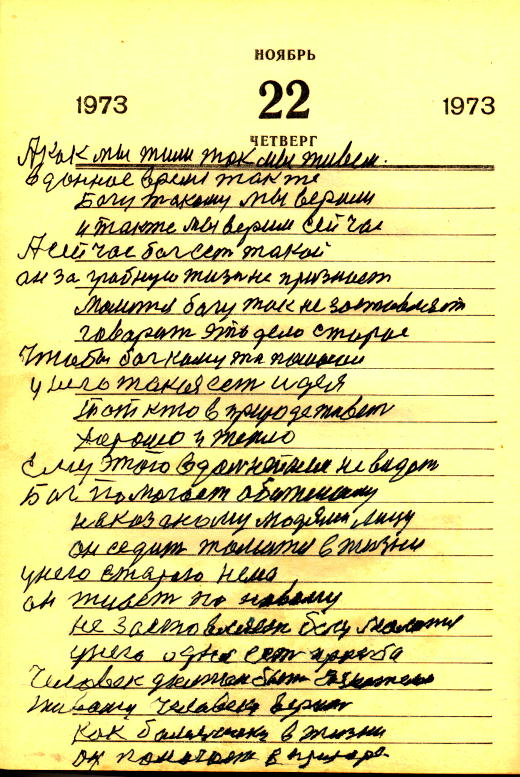 НОЯБРЬ
1973 22 1973
ЧЕТВЕРГ
А как мы жили так мы живем.
в данное время также
Богу такому мы верили
и также мы верим сейчас
А сейчас бог ест такой
он за гробную жизн не признает
Молится богу так не заставляет
говарят это дело старое
Чтобы бог кому та
у него такая ест идея
Тот кто в живет
хорошо и тепло
Ему этого не видат
Бог помогает
наказаному людями лицу
он седит в жизни
унего старого нема
он живет по новому
не заставляет богу молится
унего одна ест
Человек должен быт
Человека верит
Как в жизни
он помогает в